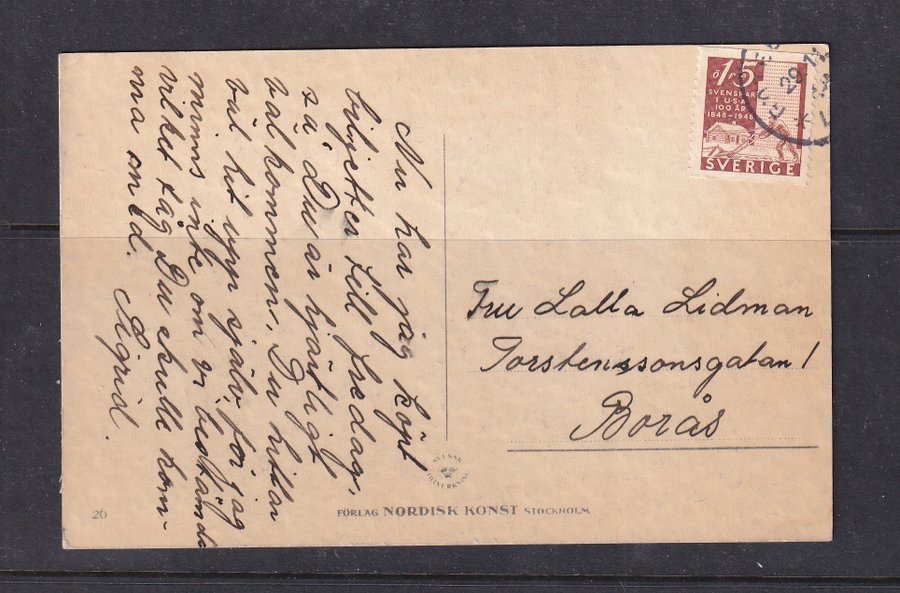 Nu har jag köpt
biljetter till fredag,
så Du är hjärtligt
välkommen. Du hittar
väl hit upp själv, för jag
minns inte om vi bestämde
vilket tåg Du skulle kom-
ma med. Sigrid.
ö 15
SVENSKAR
I U.S.A
100 ÅR
1848-1948
SVERIGE
Fru Lalla Lidman
Torstenssonsgatan 1
Borås
SVENSK
26
FÖRLAG NORDISK KONST STOCKHOLM